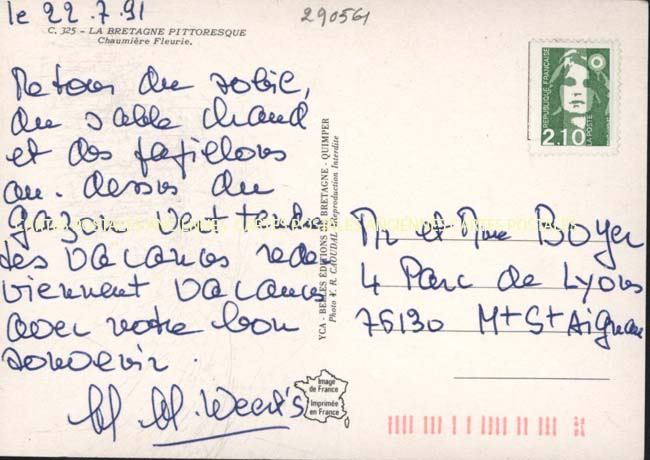 le 22.7.91
290561
C. 325 - LA BRETAGNE PITTORESQUE
Chaumière Fleurie.
Retour du soleil,
du sable chaud
et des papillons
au-dessus du
gazon vert tendre
Les vacances rede
viennent vacances
avec votre bon
souvenir.
M M. Weerts
YCA - BELLES ÉDITIONS DE BRETAGNE - QUIMPER
Photo Y. R. CAOUDAL Reproduction Interdite
CARTES POSTALES ANCIENNES CARTES POSTALES
REPUBLIQUE FRANÇAISE
2,10
LA POSTE
Mr et Mme BOYER
4 Parc de Lyons
76130 Mt St Aignan
Image
de France
Imprimée
en France